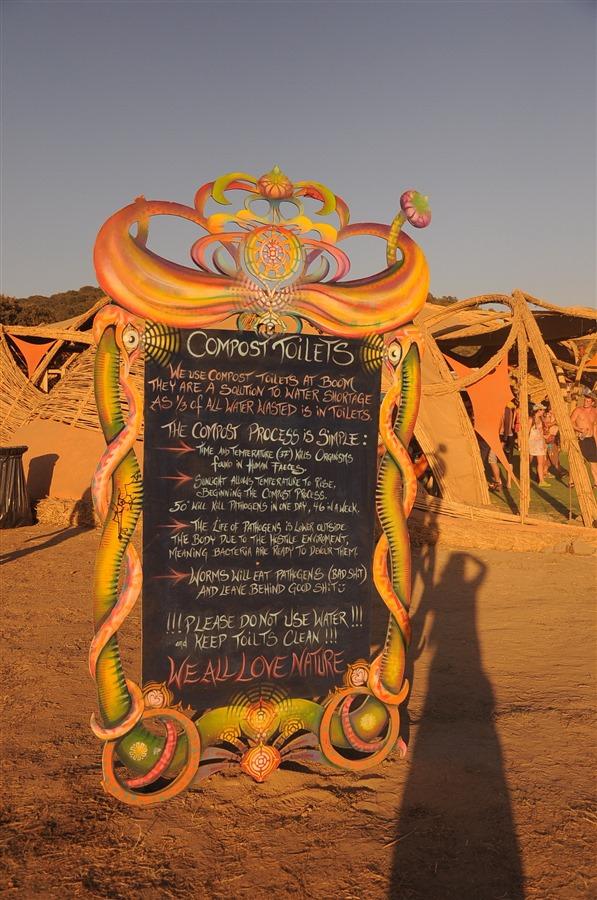 COMPOST TOILETS
WE USE COMPOST TOILETS AT BOOM
THEY ARE A SOLUTION TO WATER SHORTAGE
AS 1/3 OF ALL WATER WASTED IS IN TOILETS.
THE COMPOST PROCESS IS SIMPLE:
TIME AND TEMPERATURE (37°) KILLS ORGANISMS
FOUND IN HUMAN FAECES.
SUNLIGHT ALLOWS TEMPERATURE TO RISE,
BEGINNING THE COMPOST PROCESS.
50° WILL KILL PATHOGENS IN ONE DAY, 46 IN A WEEK.
THE LIFE OF PATHOGENS IS LOWER OUTSIDE
THE BODY DUE TO THE HOSTILE ENVIROMENT,
MEANING BACTERIA ARE READY TO DEVOUR THEM.
WORMS WILL EAT PATHOGENS (BAD SHIT)
AND LEAVE BEHIND GOOD SHIT
!!! PLEASE DO NOT USE WATER !!!
and KEEP TOILTS CLEAN !!!
WE ALL LOVE NATURE